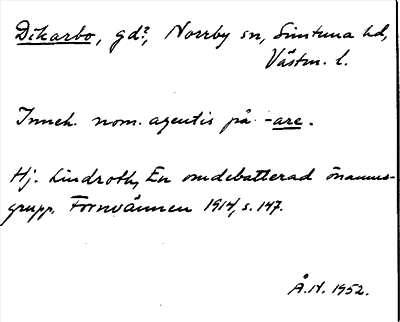 Dikarbo, gd?, Norrby sn, Simtuna hd,
Västm. l.
Inneh. nom. agentis på -are.
Hj. Lindroth, En omdebatterad önamns-
grupp. Fornvännen 1914, s. 147.
Å.N. 1952.